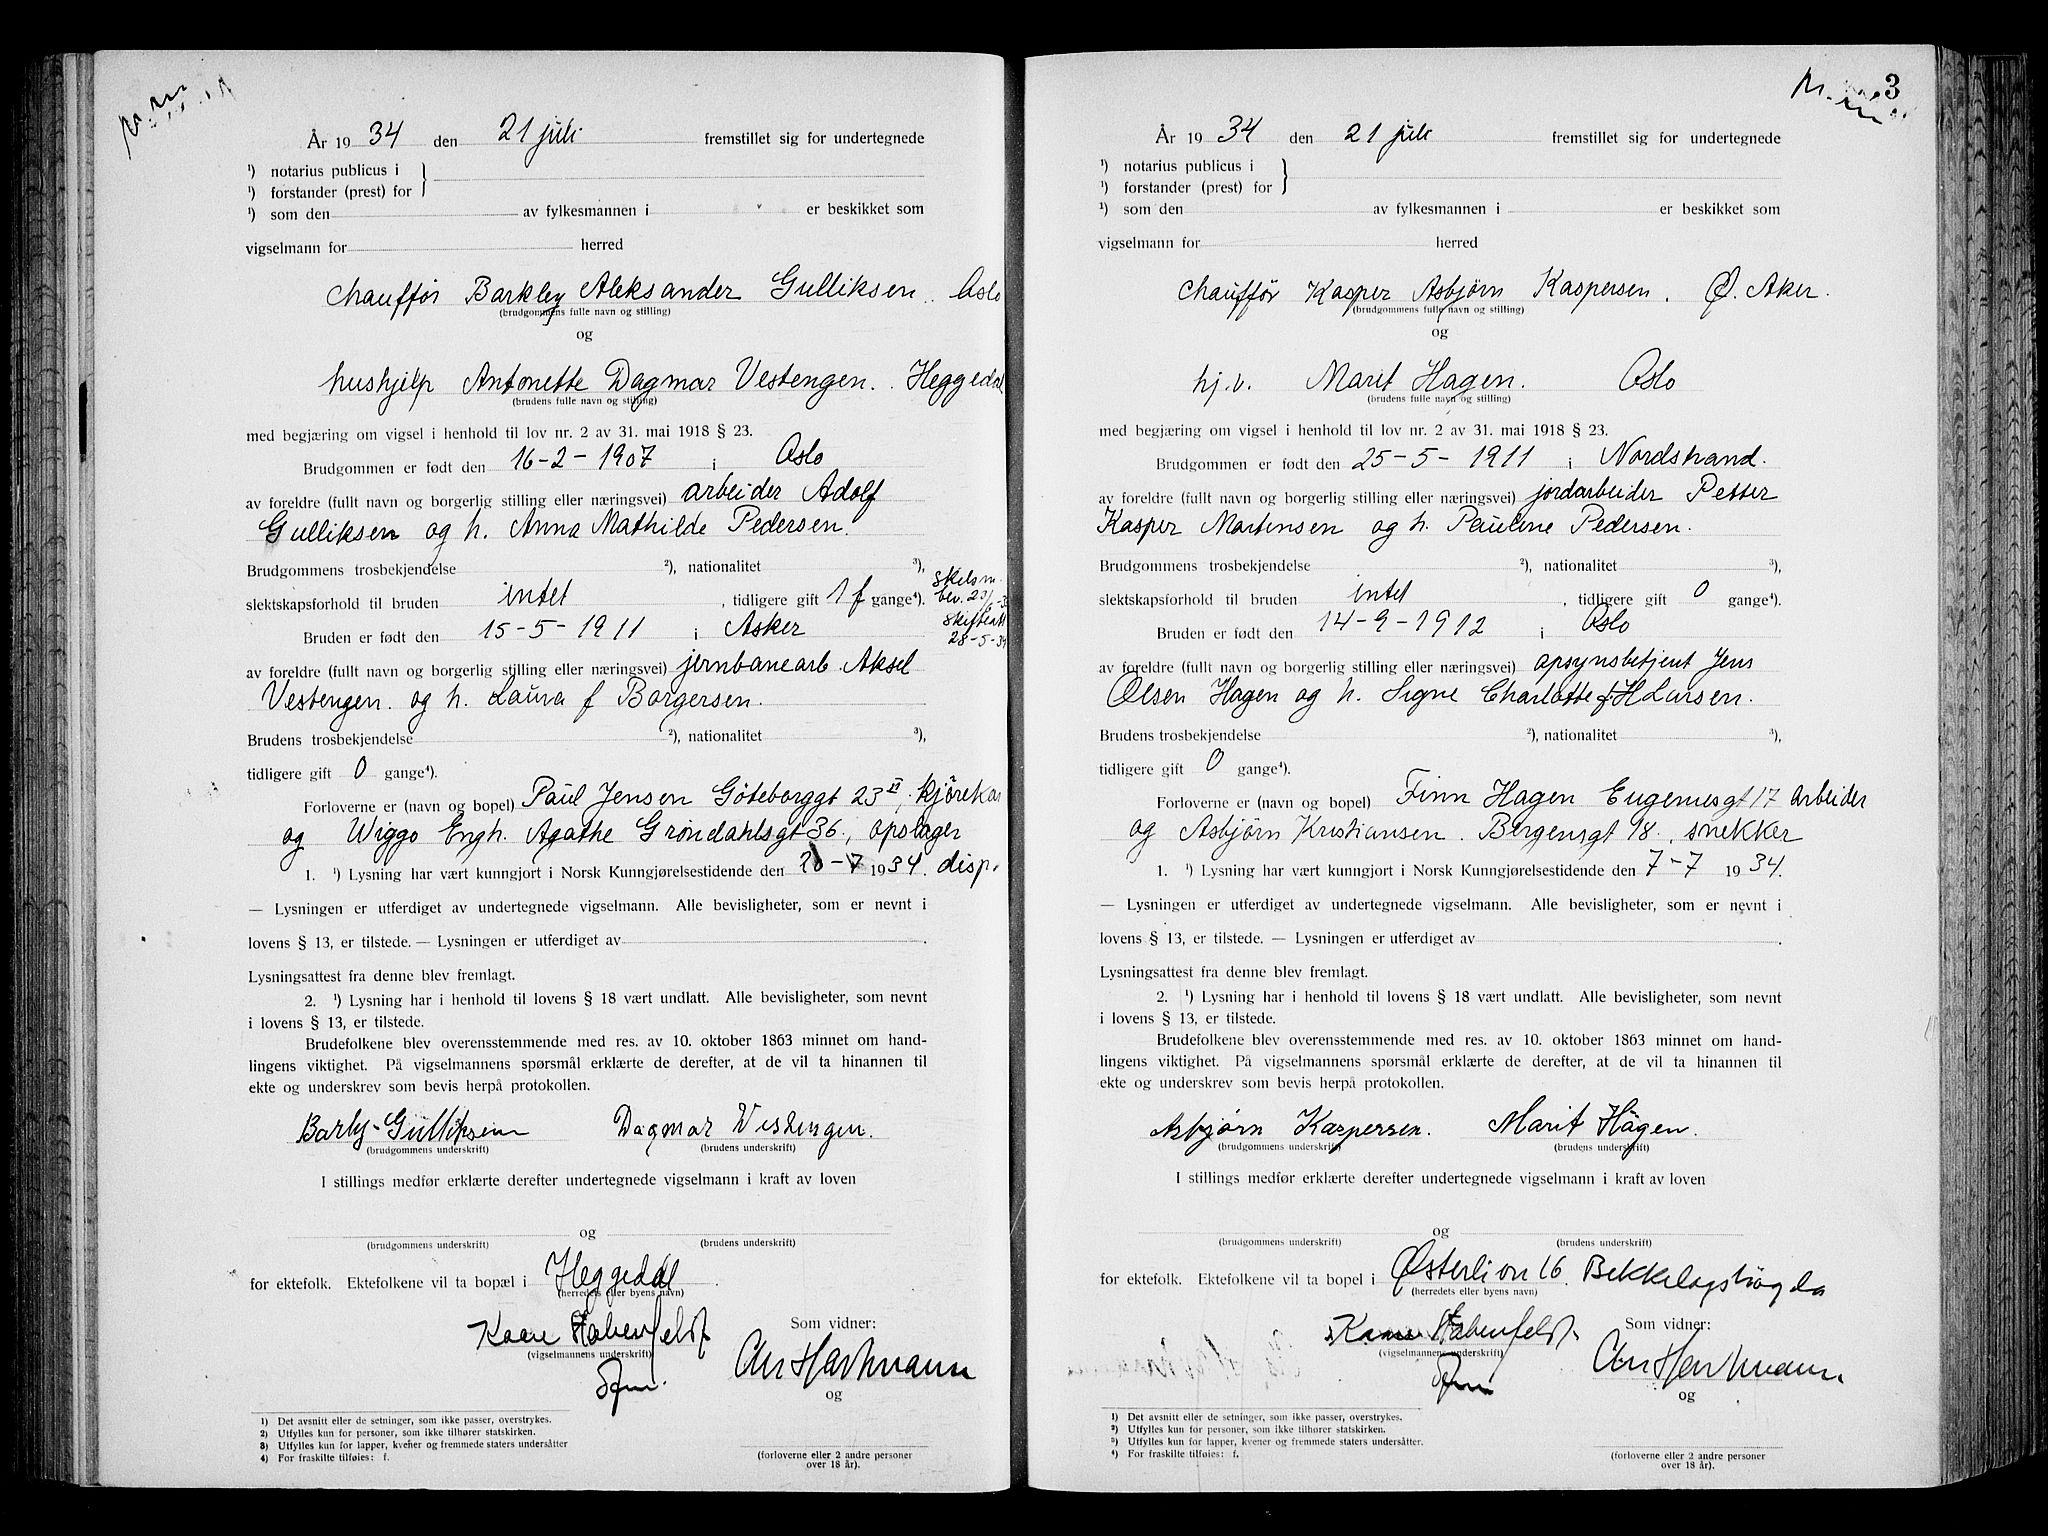 År 1934 den 21 juli fremstillet sig for undertegnede
¹) notarius publicus i
¹) forstander (prest) for
¹) som den av fylkesmannen i er beskikket som
vigselmann for herred
chauffør Barkley Aleksander Gulliksen. Oslo
(brudgommens fulle navn og stilling)
og
hushjelp Antonette Dagmar Vestengen. Heggedal
(brudens fulle navn og stilling)
med begjæring om vigsel i henhold til lov nr. 2 av 31. mai 1918 § 23.
Brudgommen er født den 16-2-1907 i Oslo
av foreldre (fullt navn og borgerlig stilling eller næringsvei) arbeider Adolf
Gulliksen og h. Anna Mathilde Pedersen.
Brudgommens trosbekjendelse ²), nationalitet ³),
slektskapsforhold til bruden intet, tidligere gift 1 f gange⁴).
skelsm.
bev. 23/
skifteatt
28-5-34
Bruden er født den 15-5-1911 i Asker
av foreldre (fullt navn og borgerlig stilling eller næringsvei) jernbanearb. Aksel
Vestengen. og h. Laura f Borgersen.
Brudens trosbekjendelse ²), nationalitet ³),
tidligere gift 0 gange⁴).
Forloverne er (navn og bopel) Paul Jensen Göteborggt 23 II, kjørekar
og Wiggo Engh. Agathe Grøndahlsgt 36., opslager
1. ¹) Lysning har vært kunngjort i Norsk Kunngjørelsestidende den 20-7 1934. disp.
— Lysningen er utferdiget av undertegnede vigselmann. Alle bevisligheter, som er nevnt i
lovens § 13, er tilstede. — Lysningen er utferdiget av
Lysningsattest fra denne blev fremlagt.
2. ¹) Lysning har i henhold til lovens § 18 vært undlatt. Alle bevisligheter, som nevnt
i lovens § 13, er tilstede.
Brudefolkene blev overensstemmende med res. av 10. oktober 1863 minnet om hand-
lingens viktighet. På vigselmannens spørsmål erklærte de derefter, at de vil ta hinannen til
ekte og underskrev som bevis herpå protokollen.
Barly Gulliksen Dagmar Vestengen.
(brudgommens underskrift) (brudens underskrift)
I stillings medfør erklærte derefter undertegnede vigselmann i kraft av loven
og
(brudgommens underskrift) (brudens underskrift)
for ektefolk. Ektefolkene vil ta bopæl i Heggedal.
(herredets eller byens navn)
Kaare Habenfeldt Som vidner:
(vigselmannens underskrift)
Chr Hartmann
og
1) Det avsnitt eller de setninger, som ikke passer, overstrykes.
2) Utfylles kun for personer, som ikke tilhører statskirken.
3) Utfylles kun for lapper, kvener og fremmede staters undersåtter
4) For fraskilte tilføies: f.
(forloverne eller 2 andre personer
over 18 år).
3
År 1934 den 21 juli fremstillet sig for undertegnede
¹) notarius publicus i
¹) forstander (prest) for
¹) som den av fylkesmannen i er beskikket som
vigselmann for herred
chauffør Kasper Asbjørn Kaspersen. Ø. Aker.
(brudgommens fulle navn og stilling)
og
hj.v. Marit Hagen. Oslo
(brudens fulle navn og stilling)
med begjæring om vigsel i henhold til lov nr. 2 av 31. mai 1918 § 23.
Brudgommen er født den 25-5-1911 i Nordstrand.
av foreldre (fullt navn og borgerlig stilling eller næringsvei) jordarbeider Petter
Kasper Martensen og h. Pauline Pedersen.
Brudgommens trosbekjendelse ²), nationalitet ³),
slektskapsforhold til bruden intet, tidligere gift 0 gange⁴).
Bruden er født den 14-9-1912 i Oslo
av foreldre (fullt navn og borgerlig stilling eller næringsvei) opsynsbetjent Jens
Olsen Hagen og h. Signe Charlotte f. H Larsen.
Brudens trosbekjendelse ²), nationalitet ³),
tidligere gift 0 gange⁴).
Forloverne er (navn og bopel) Finn Hagen Eugeniesgt 17 arbeider
og Asbjørn Kristiansen. Bergensgt 18., snekker
1. ¹) Lysning har vært kunngjort i Norsk Kunngjørelsestidende den 7-7 1934.
— Lysningen er utferdiget av undertegnede vigselmann. Alle bevisligheter, som er nevnt i
lovens § 13, er tilstede. — Lysningen er utferdiget av
Lysningsattest fra denne blev fremlagt.
2. ¹) Lysning har i henhold til lovens § 18 vært undlatt. Alle bevisligheter, som nevnt
i lovens § 13, er tilstede.
Brudefolkene blev overensstemmende med res. av 10. oktober 1863 minnet om hand-
lingens viktighet. På vigselmannens spørsmål erklærte de derefter, at de vil ta hinannen til
ekte og underskrev som bevis herpå protokollen.
Asbjørn Kaspersen. Marit Hagen.
(brudgommens underskrift) (brudens underskrift)
I stillings medfør erklærte derefter undertegnede vigselmann i kraft av loven
og
(brudgommens underskrift) (brudens underskrift)
for ektefolk. Ektefolkene vil ta bopel i Østerlien 16. Bekkelagshøgda
(herredets eller byens navn)
Kaare Habenfeldt Som vidner:
(vigselmannens underskrift)
Chr Hartmann
og
¹) Det avsnitt eller de setninger, som ikke passer, overstrykes.
²) Utfylles kun for personer, som ikke tilhører statskirken.
³) Utfylles kun for lapper, kvener og fremmede staters undersåtter.
⁴) For fraskilte tilføies: f.
(forloverne eller 2 andre personer
over 18 år).